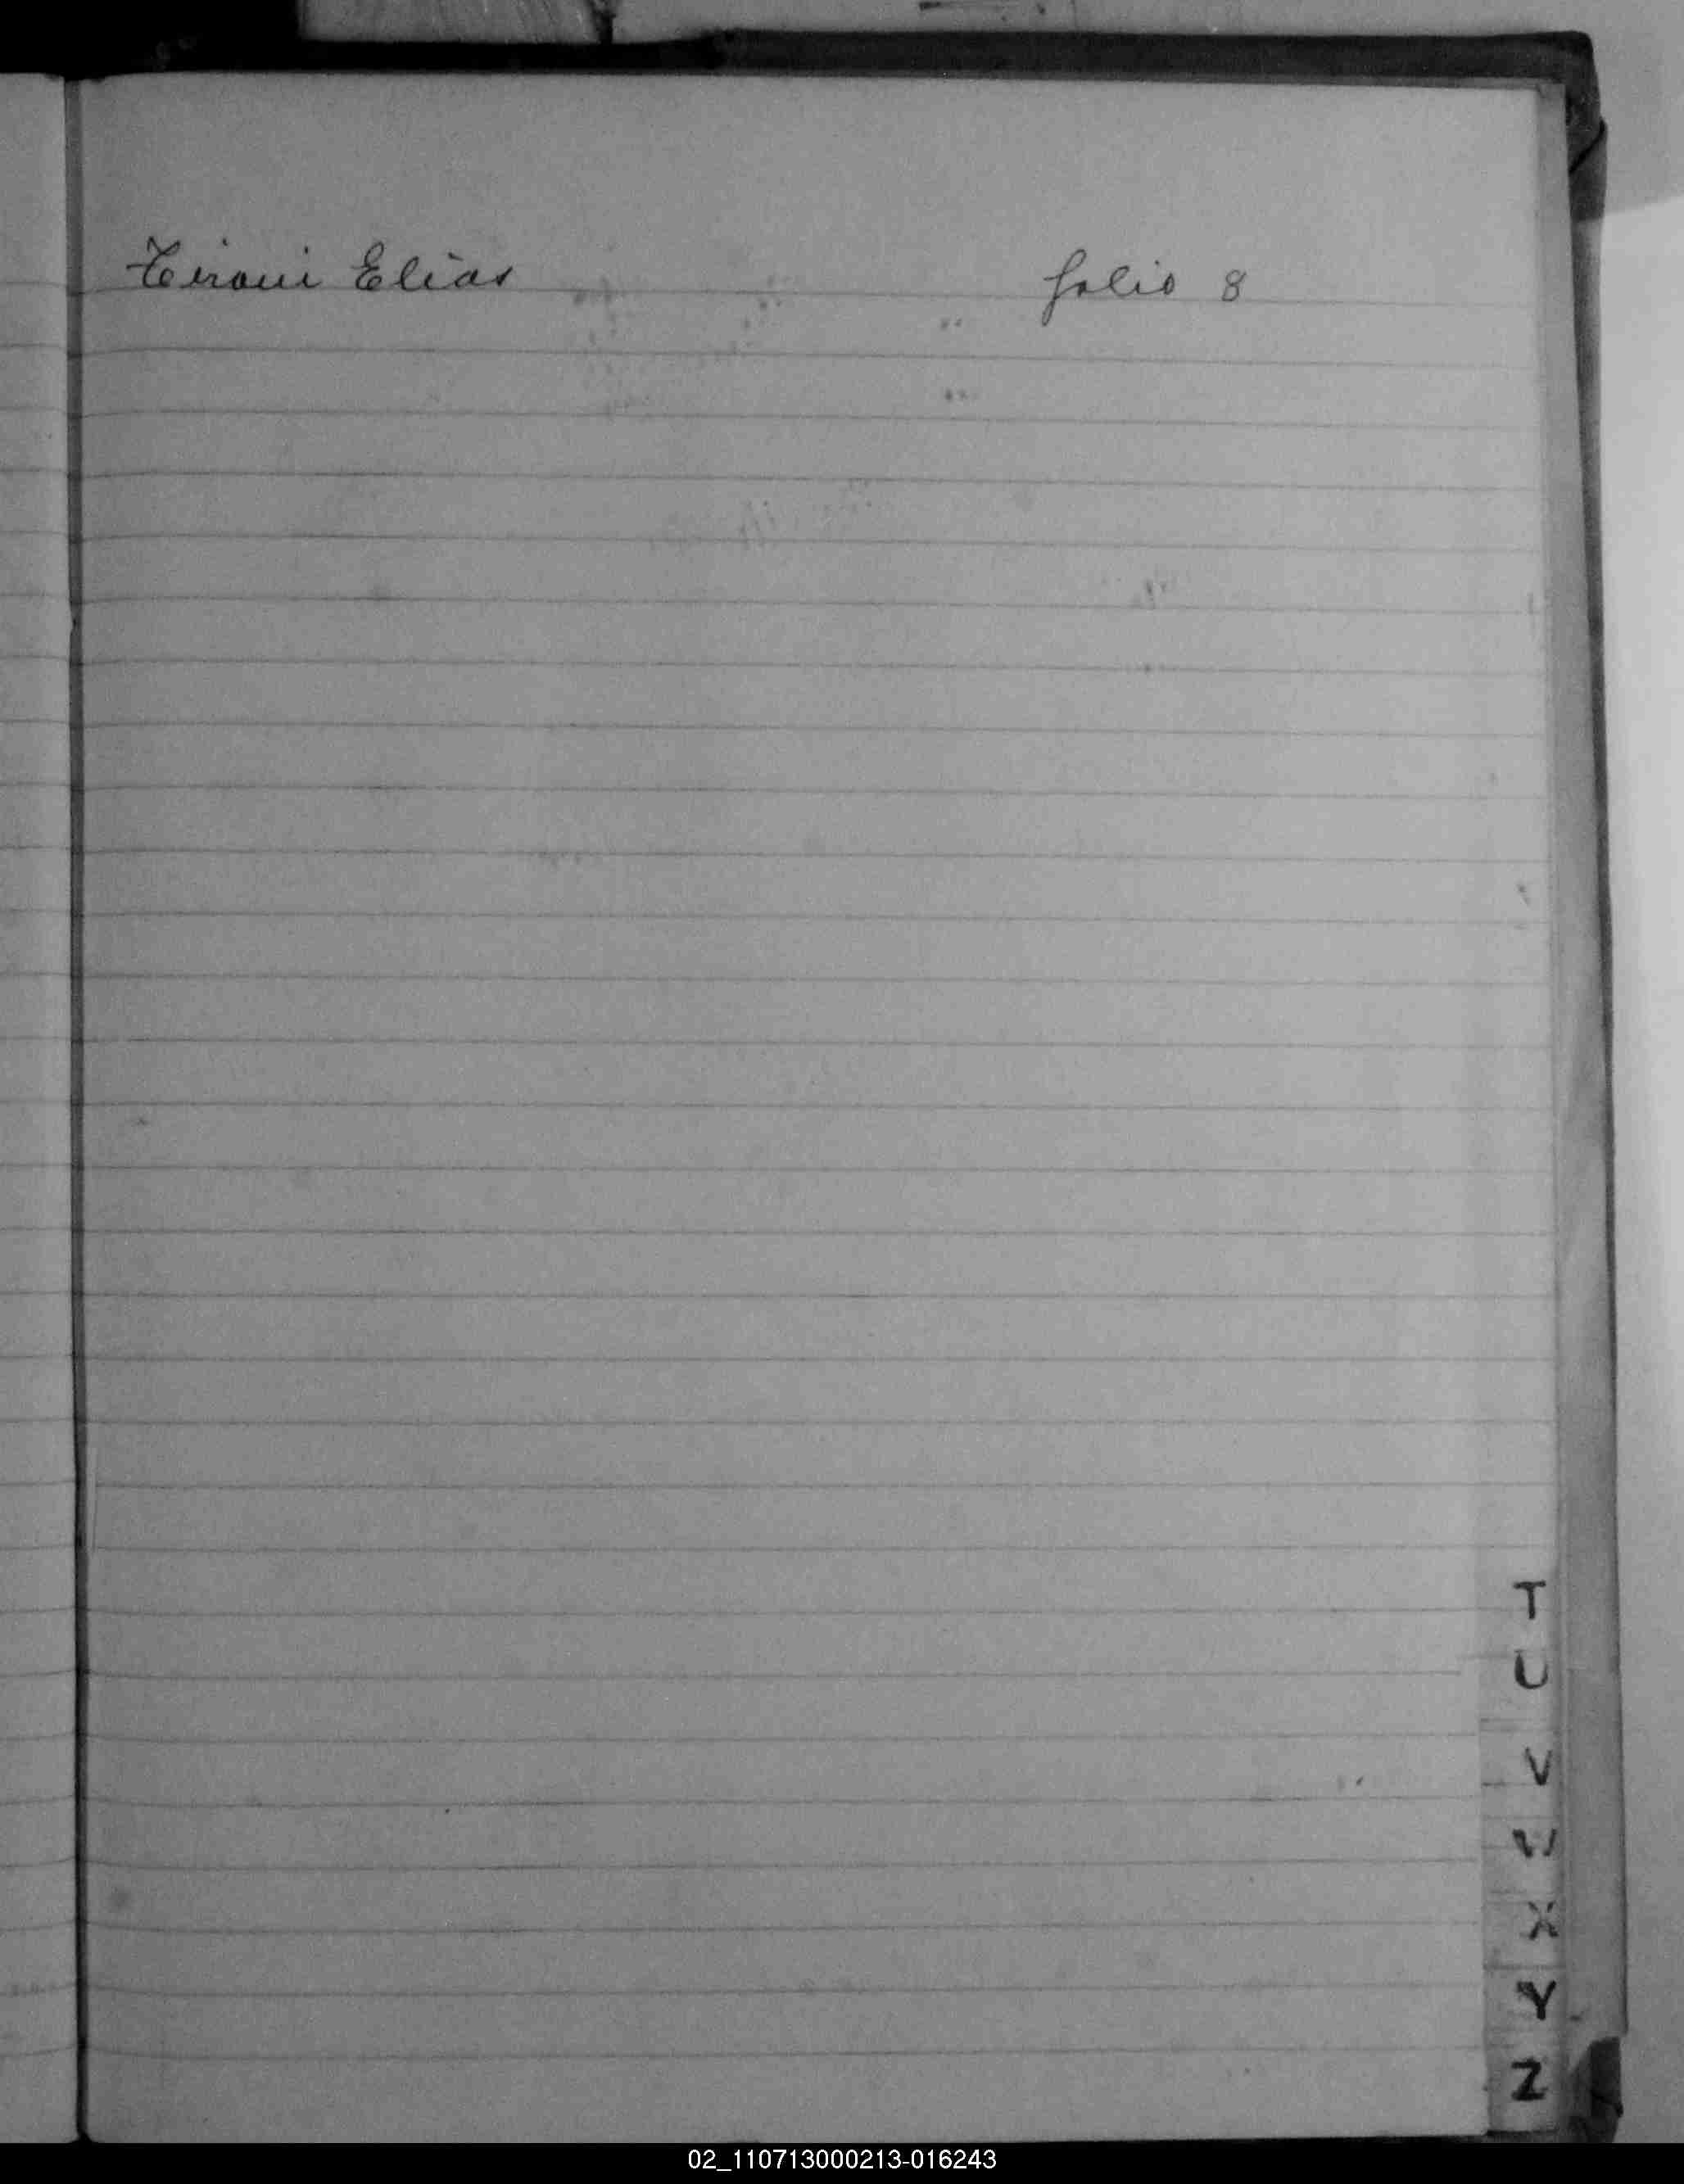 Elias folio 8
T
U
V
W
X
Y
Z
02_110713000213-016243